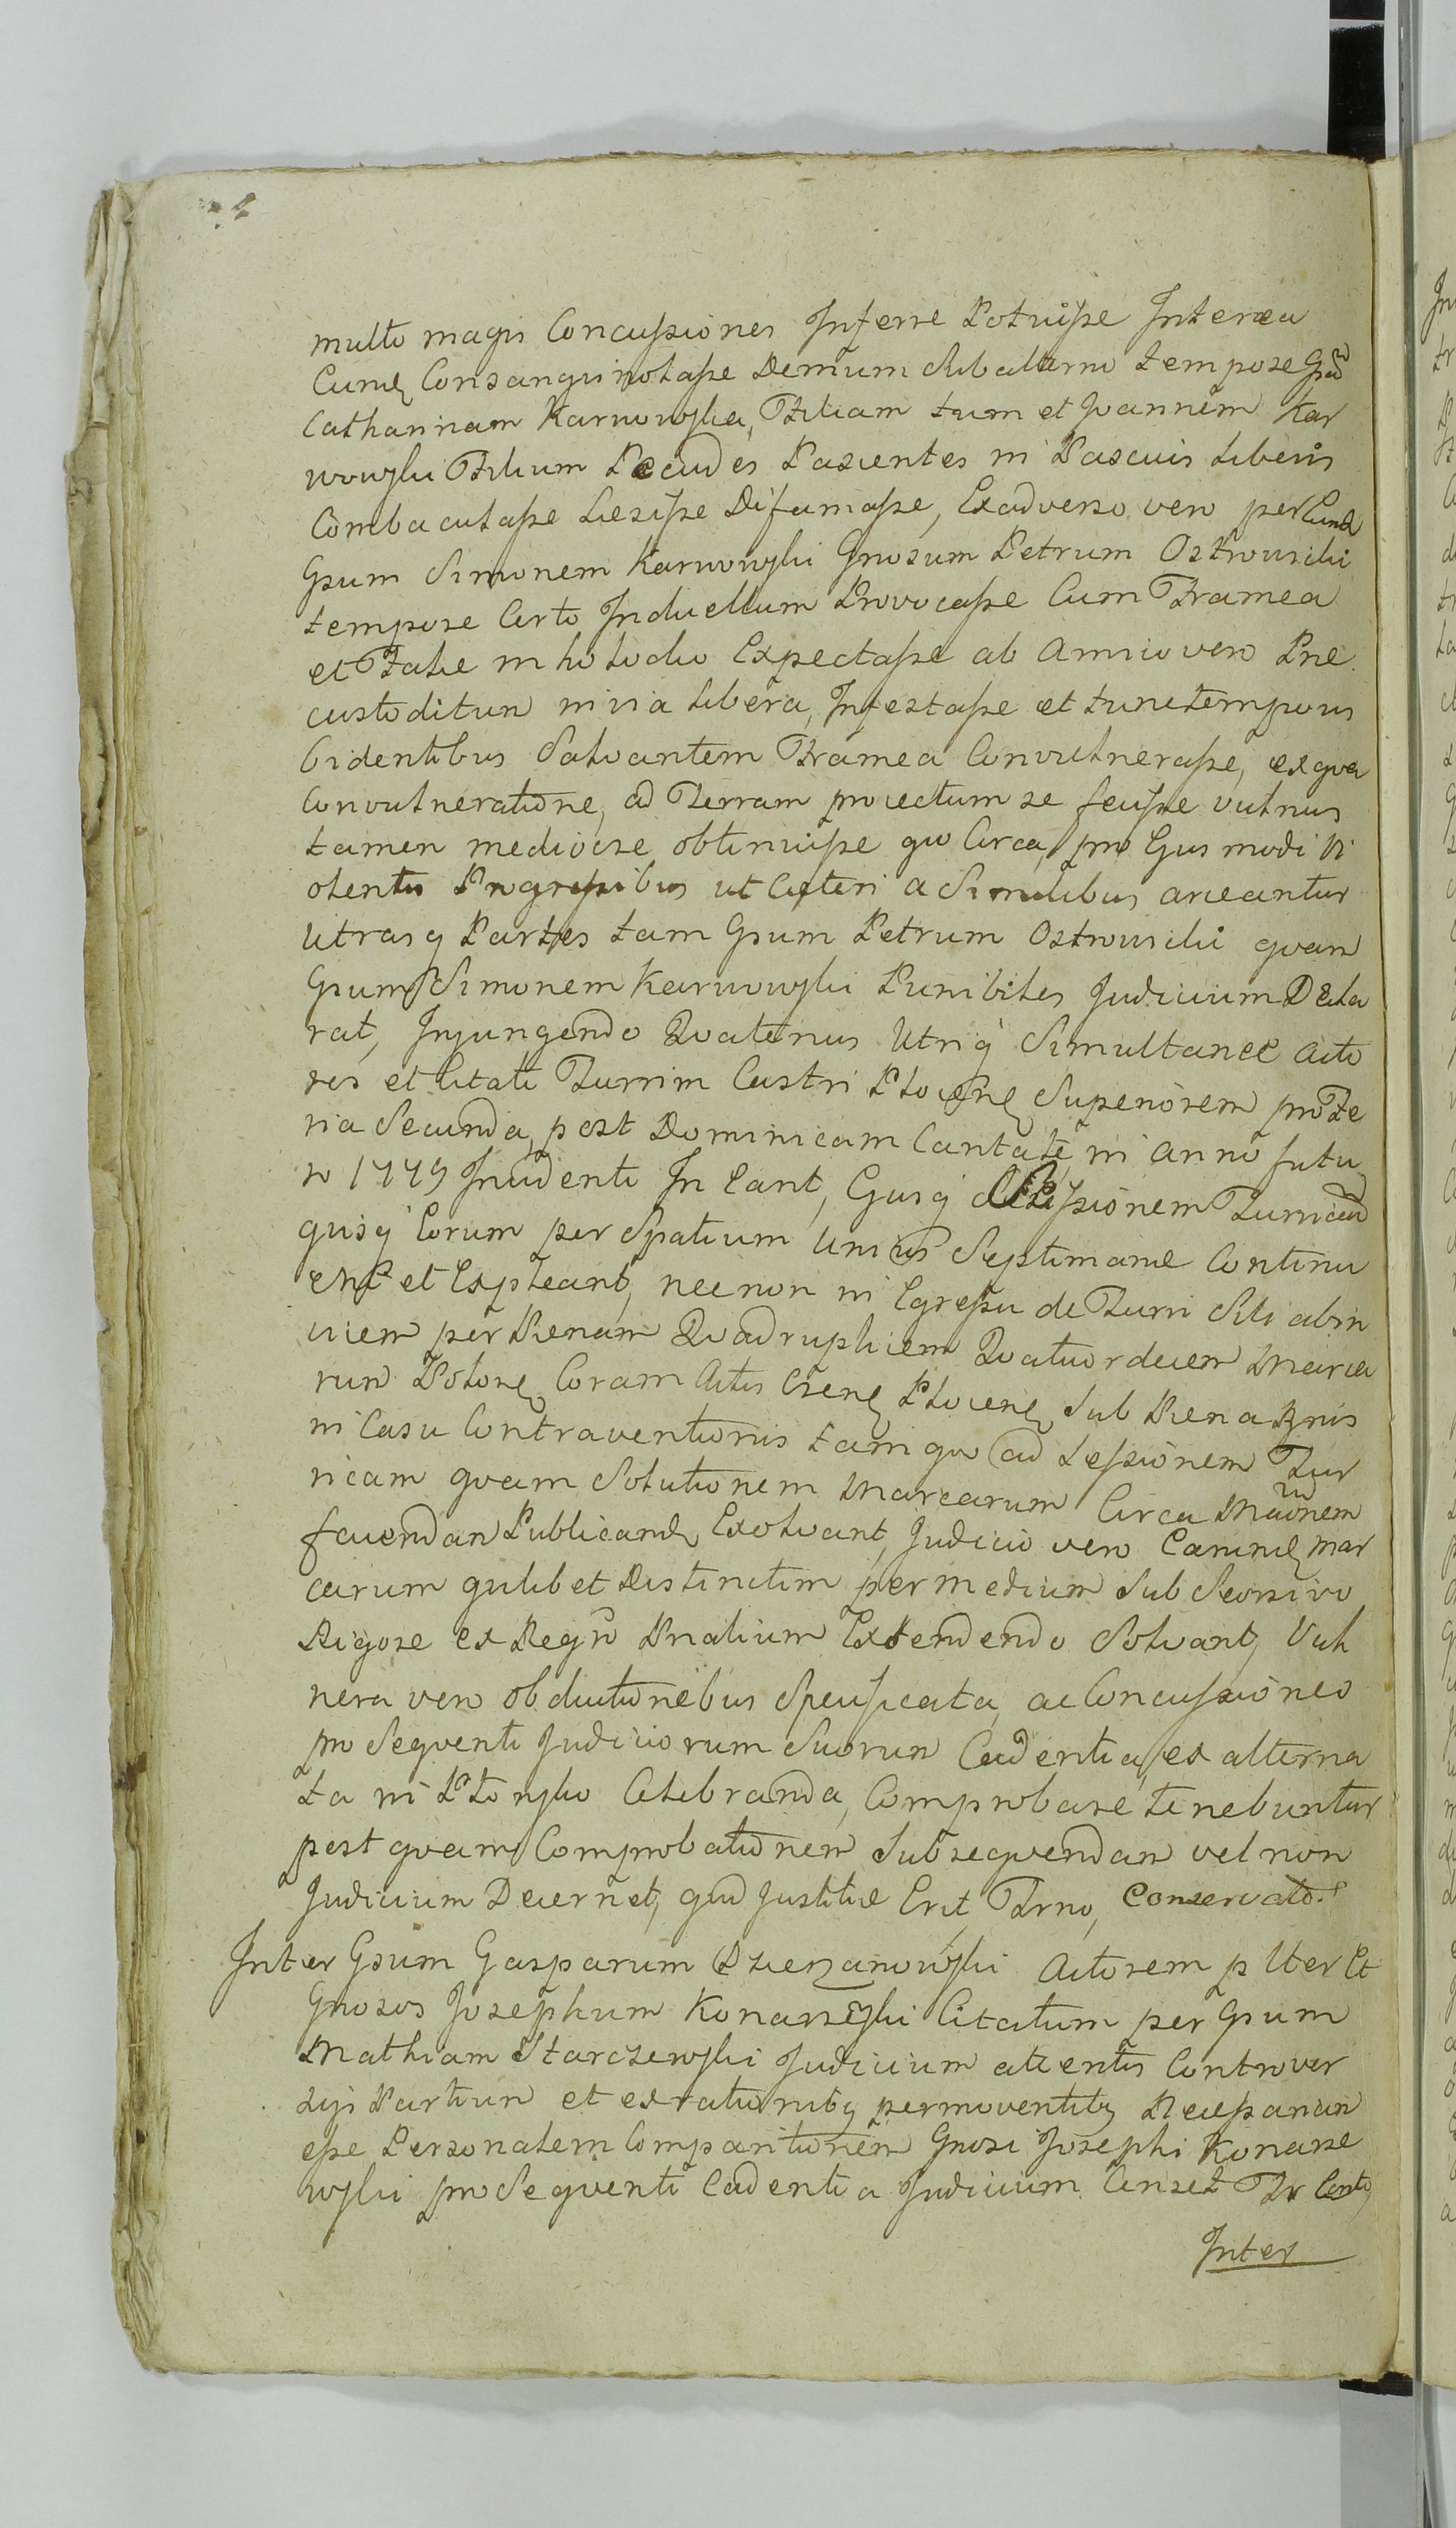 multo magis Concussiones Inferre Potuisse Interea
Cumq Consanguinotasse Demum Subalterno tempore Gsã
Catharinam Karwowska, Filiam tum et Joannem Kar
wowski Filium Pecudes Pascentes in Pascuis Liberis
Combacutasse Lesisse Difamasse, Exadverso vero per
Gsum Simonem Karwowski Gnosum Petrum Ostrowicki
tempore Certo Induellum Provocasse Cum Framea
et Talie in Expectasse ab Amico vero Pre
custoditum in via libera, Infestasse et tunctemporis
Videntibus Salvantem Framea Convulnerasse, ex qva
Convulneratione, ad Terram proiectum se fecisse vulnus
tamen mediocre obtinuisse qvo Circa, pro Ejus modi Vi
olentis Progressibus ut Caeteri a Similibus arceantur
Utrasq Partes tam Gsum Petrum Ostrowicki qvam
Gsum Simonem Karwowski Punibiles Judicium Decla
rat, Injungendo Qvatenus Utriq Simultanee Acto
res et Citati Turrim Castri Plocens Superiorem pro Fe
ria Secunda, post Dominicam Cantate in Anno futu
ro 1779 Incidenti In Eant, Ejusq Sessionem Turricam
qvisq Eorum per Spatium Unius Septimanae Continu
ent et Expleant, necnon in Egressu de Turri Sibi abin
vicem per Paenam Qvadruplicem Qvatuordecem Marca
rum Polon Coram Actis Csens Plocens Sub Paena Bnis
in Casu Contraventionis tam qvo ad Sessionem Tur
ricam qvam Solutionem Marcarum Circa
faciendam Publicand Exolvant, Judicio vero Earund Mar
carum qvilibet Distinctim per medium Sub Seorsivo
Rigore ex Regro Pnalium Extendendo Solvant, Vul
nera vero obductionibus Specificata, ac Concussiones
pro Seqventi Judiciorum Suorum Cadentia, ex alterna
ta in Płońsko Celebranda, Comprobare tenebuntur
post qvam Comprobationem Subseqvendam vel non
Judicium Decernet, qvid Justitiae Erit Trno, Conservato.
Inter Gsum Gasparum Dzierzanowski Actorem p Uter Et
Gnosos Josephum Konarzewski Citatum per Gsum
Mathiam Starczewski Judicium attentis Controver
sijs Partium et ex rationibq permoventibq Necessariam
esse Personalem Comparitionem Gnosi Josephi Konarze
wski pro Seqventi Cadentia Judicium Censet Tr
Inter